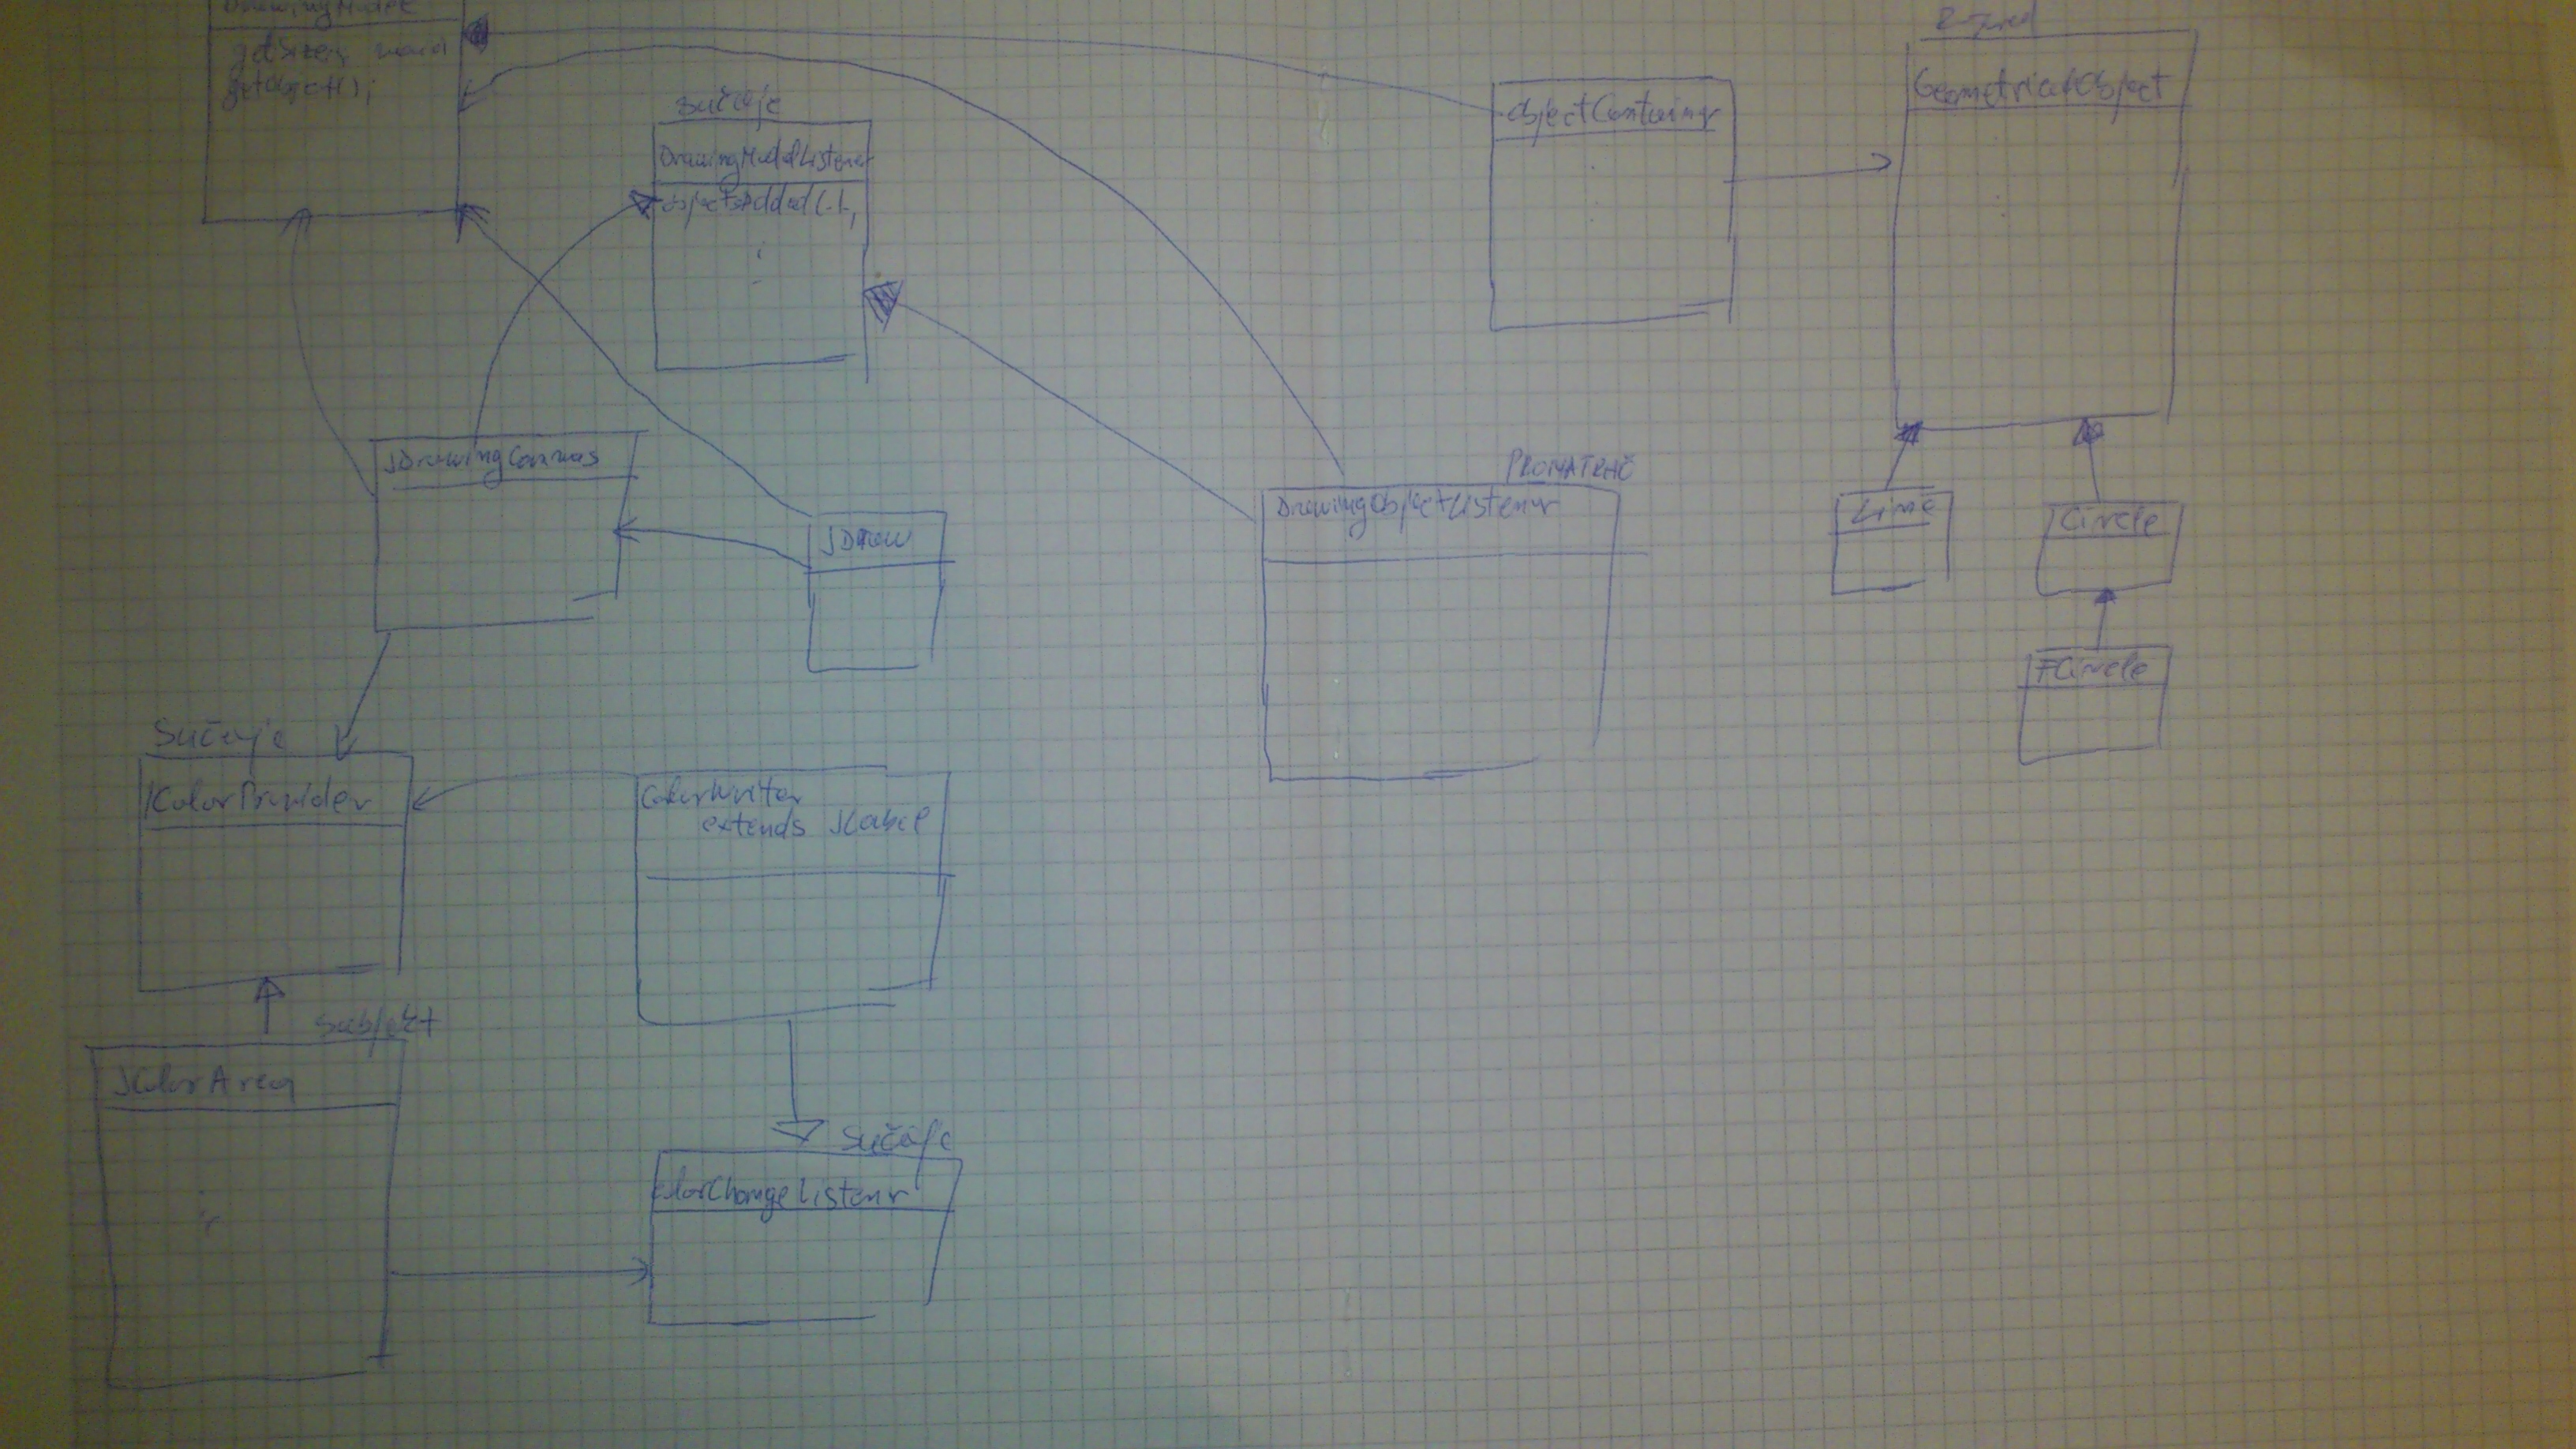 DrawingModel
getSize();
getObject();
sučelje
DrawingModelListener
objectsAdded(...);
objectContainer
GeometricalObject
JDrawingCanvas
JDraw
PROMATRAČ
DrawingObjectListener
Line
Circle
FCircle
Sučelje
IColorProvider
ColorWriter
extends JLabel
Subjekt
JColorArea
Sučelje
ColorChangeListener